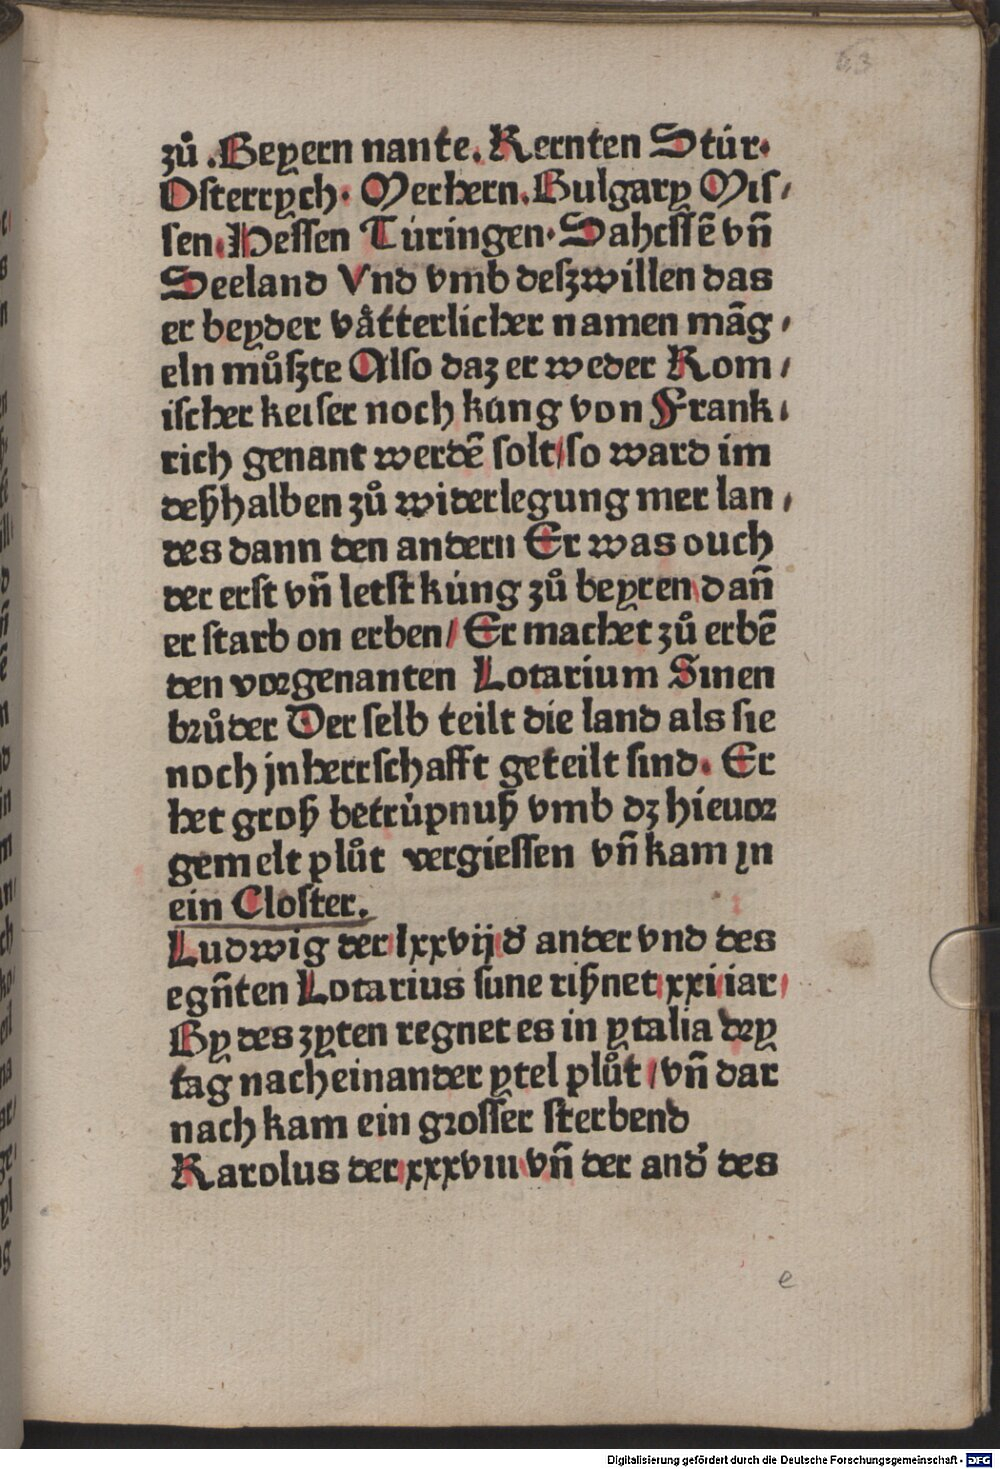 63
zů .Beyern nante. Kernten Stúr.
Osterrych. Merhern. Bulgary Mis/
sen. Hessen Túringen. Sahcssē vn̄
Seeland Vnd vmb deſzwillen das
er beyder våtterlicher namen mãg/
eln můſzte Also daz er weder Rom/
iſcher keiſer noch kúng von Frank/
rich genant werdē solt/ſo ward im
deßhalben zů widerlegung mer lan/
des dann den andern Er was ouch
der erſt vn̄ letſt kúng zů beyren dan̄
er ſtarb on erben/ Er machet zů erbē
den vorgenanten Lotarium Sinen
brůder Der ſelb teilt die land als ſie
noch jnherrſchafft geteilt ſind. Er
het groß betrúpnuß vmb dz hieuor
gemelt plůt vergieſſen vn̄ kam in
ein Cloſter.
Ludwig der lxxvij d' ander vnd des
egn̄ten Lotarius ſune rißnet xxi iar/
By des zyten regnet es in ytalia dry
tag nacheinander ytel plůt /vn̄ dar
nach kam ein groſſer ſterbend
Karolus der xxxviii vn̄ der and' des
e
Digitalisierung gefördert durch die Deutsche Forschungsgemeinschaft - DFG